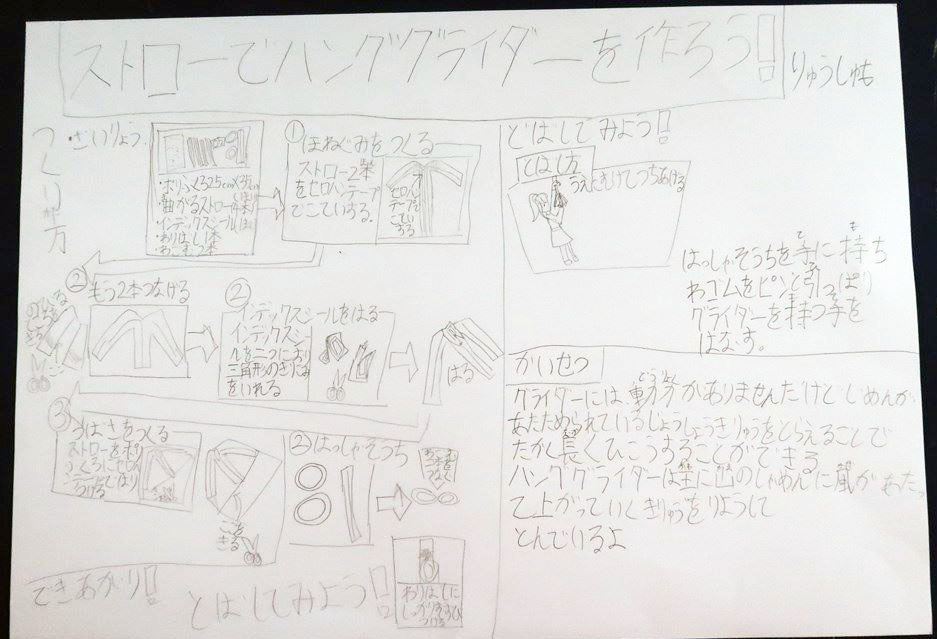 ストローでハンググライダーを作ろう!
りゅうしゅも
つくり方
ざいりょう
・ポリぶくろ25cm×35cm
・曲がるストロー
・インデックスシール
・わりばし1本
・わごむ2本
① ほねぐみをつくる
ストロー2本
をセロハンテープ
でこていする。
セロハン
テープで
こてい
する
② もう2本つなげる
② インデックスシールをはる
インデックスシー
ルを二つにおり
三角形のきりこみ
をいれる
はる
③ つばさをつくる
ストローをポリ
ぶくろにセロハン
テープではり
つける
ここを
きる
③ はっしゃそうち
わりばしに
しっかりむすび
つける
できあがり!
とばしてみよう!
とばしてみよう!
とばし方
うえにむけてうちあげる
はっしゃそうちを手に持ち
わゴムをピンと引っぱり
グライダーを持つ手を
はなす。
かいせつ
グライダーには、動力がありませんだけどじめんが
あたためられているじょうしょうきりゅうをとらえることで
たかく長くひこうすることができる
ハンググライダーは主に山のしゃめんに風があたっ
て上がっていくきりゅうをりようして
とんでいるよ